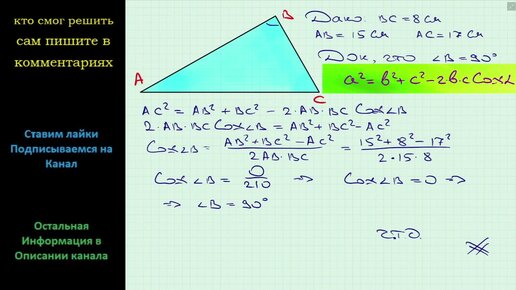 кто смог решить
сам пишите в
комментариях
Ставим лайки
Подписываемся на
Канал
Остальная
Информация в
Описании канала
A
B
C
Дано: BC = 8 см
AB = 15 см AC = 17 см
Док, что ∠B = 90°
a² = b² + c² - 2b·c Cos∠
AC² = AB² + BC² - 2·AB·BC Cos∠B
2·AB·BC Cos∠B = AB² + BC² - AC²
Cos∠B = (AB² + BC² - AC²) / (2AB·BC) = (15² + 8² - 17²) / (2·15·8)
Cos∠B = 0/210 ⇒ Cos∠B = 0 ⇒
⇒ ∠B = 90°
ЧТО.